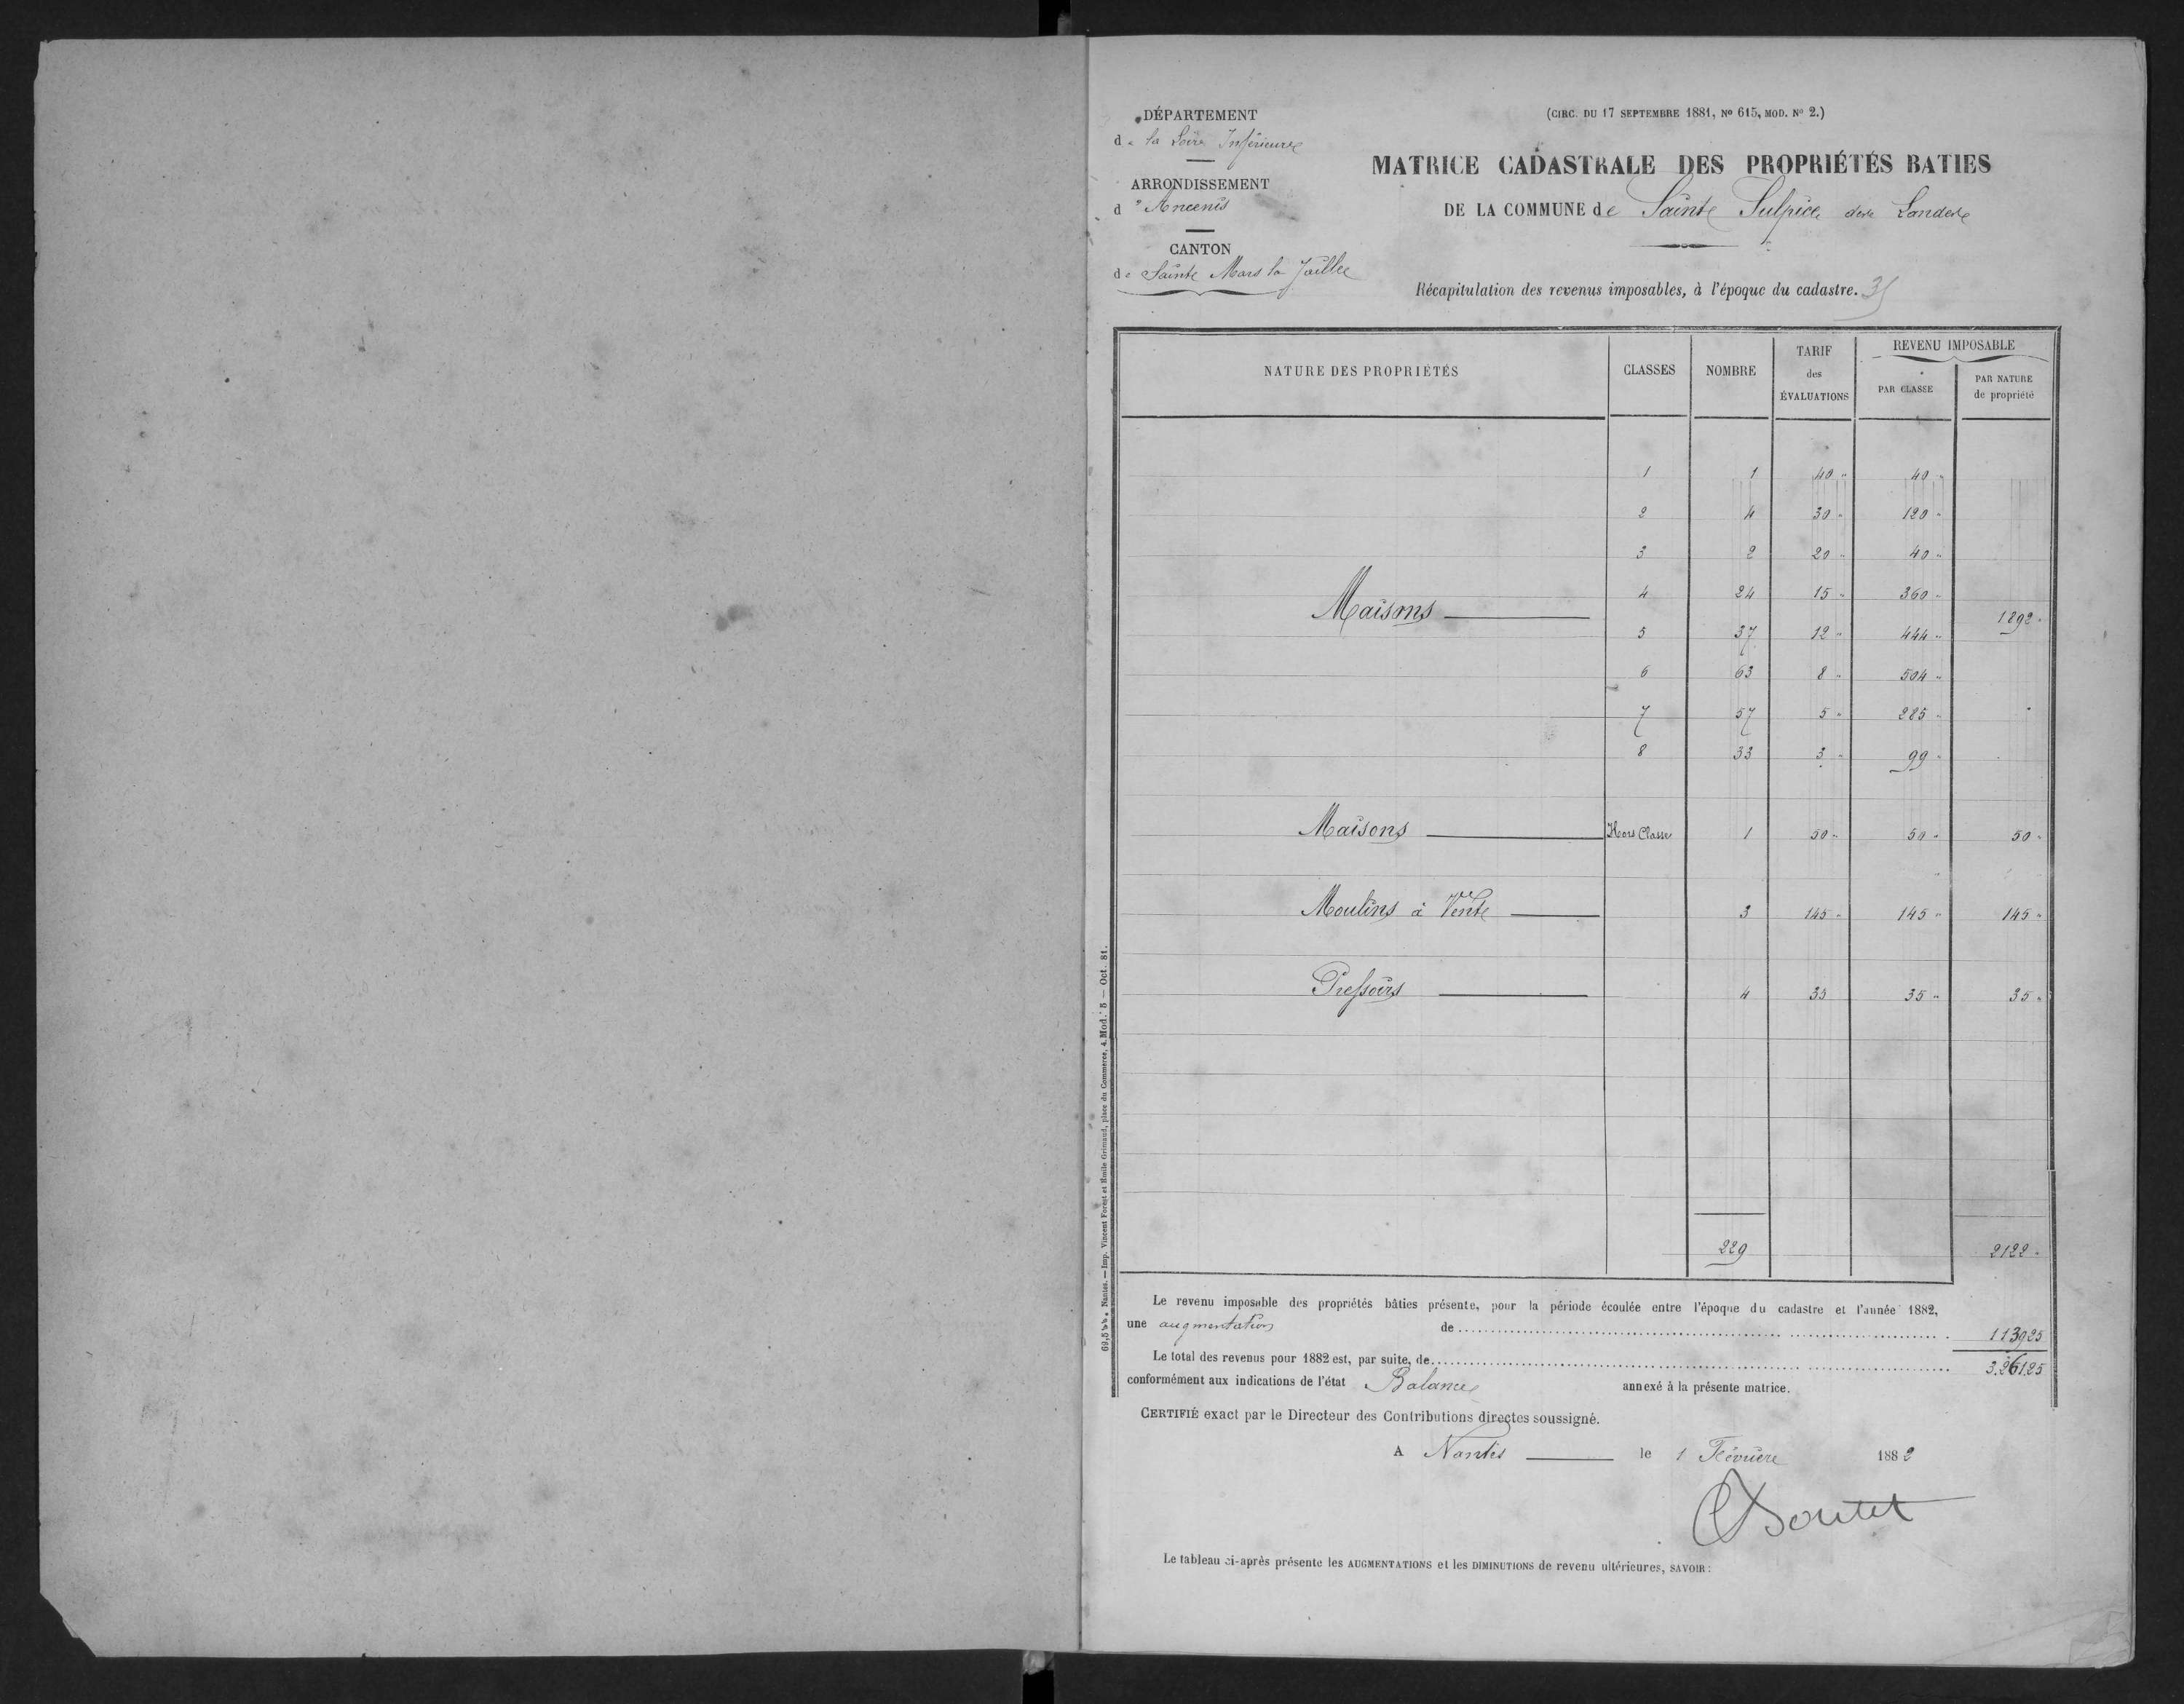 DÉPARTEMENT
de la Loire Inférieure
ARRONDISSEMENT
d'Ancenis
CANTON
de Sainte Mars la Jaille
(CIRC. DU 17 SEPTEMBRE 1881, No 615, MOD. No 2.)
MATRICE CADASTRALE DES PROPRIÉTÉS BATIES
DE LA COMMUNE de Sainte Sulpice des Landes
Récapitulation des revenus imposables, à l'époque du cadastre.
NATURE DES PROPRIÉTÉS CLASSES NOMBRE TARIF des ÉVALUATIONS REVENU IMPOSABLE
PAR CLASSE PAR NATURE de propriété
1 1 40 " 40 "
2 4 30 " 120 "
3 2 20 " 40 "
4 24 15 " 360 "
Maisons 1892 "
5 37 12 " 444 "
6 63 8 " 504 "
7 57 5 " 285 "
8 33 3 " 99 "
Maisons Hors Classe 1 50 " 50 " 50 "
Moulins à Vent 3 145 " 145 " 145 "
Pressoirs 4 35 35 " 35 "
229 2122 "
Le revenu imposable des propriétés bâties présente, pour la période écoulée entre l'époque du cadastre et l'année 1882,
une augmentation de 113925
Le total des revenus pour 1882 est, par suite, de 3.26125
conformément aux indications de l'état Balance annexé à la présente matrice.
CERTIFIÉ exact par le Directeur des Contributions directes soussigné.
A Nantes le 1 Février 1882
Le tableau ci-après présente les AUGMENTATIONS et les DIMINUTIONS de revenu ultérieures, SAVOIR :
Nantes. — Imp. Vincent Forest et Emile Grimaud, place du Commerce, 4. Mod. 5 — Oct. 81.